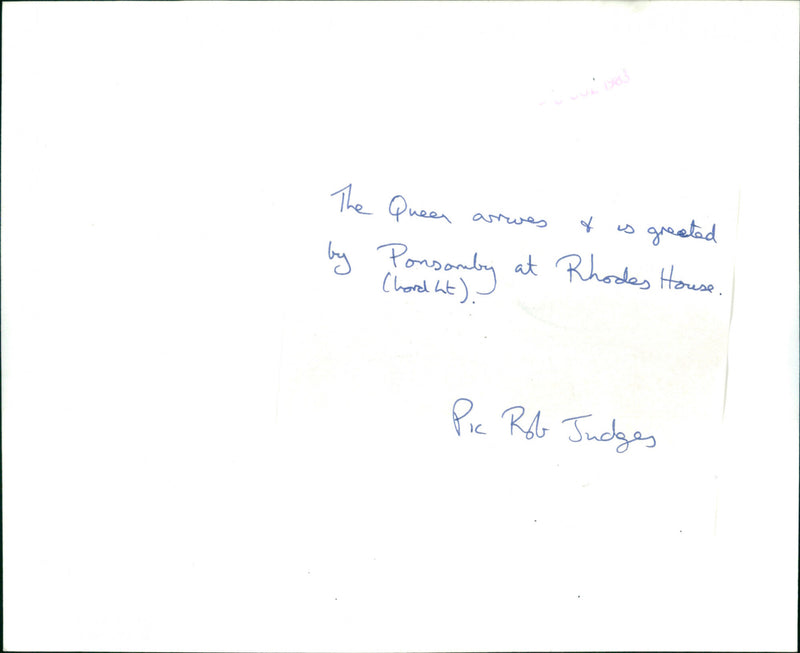 The Queen arrives & is greeted
by Ponsonby at Rhodes House.
(Lord Lt).
Pic Rob Judges